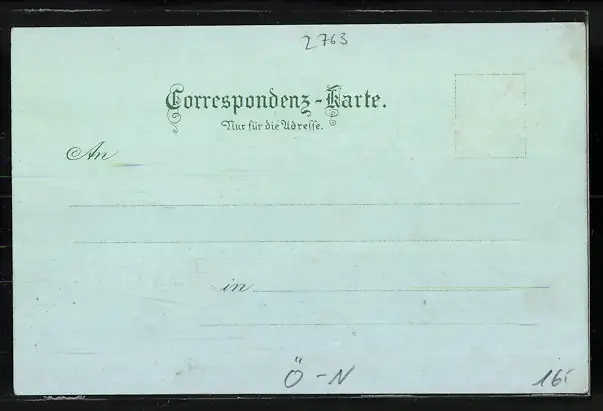 2763
Correspondenz-Karte.
Nur für die Adresse.
An
in
Ö-N
16,-